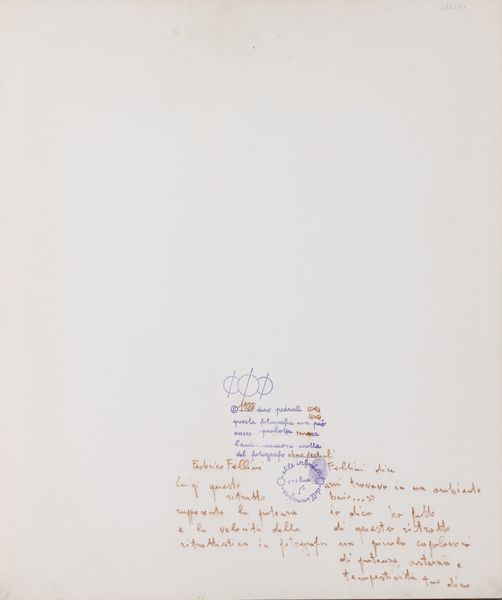 ØØØ
© dino pedriali
questa fotografia non può
essere prodotta senza
l'autorizzazione scritta
del fotografo
Federico Fellini
Luigi questo
ritratto
rappresenta la potenza
e la velocità della
ritrattistica in fotografia
Fellini dice
mi trovavo in un ambiente
buio...
io dico ho fatto
di questo ritratto
un piccolo capolavoro
di potenza, e
tempestività tuo dino